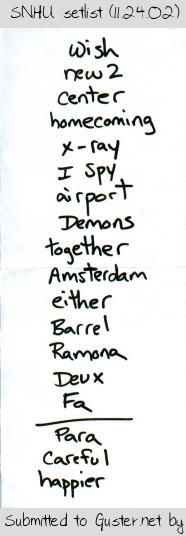 SNHU setlist (11.24.02)
Wish
new 2
center
homecoming
x-ray
I Spy
airport
Demons
together
Amsterdam
either
Barrel
Ramona
Deux
Fa
Para
Careful
happier
Submitted to Guster.net by